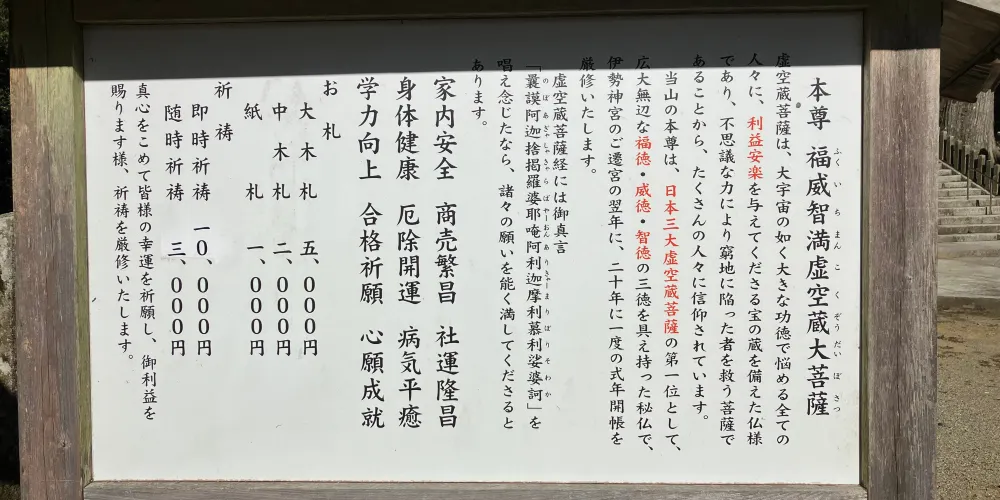 本尊 福威智満虚空蔵大菩薩
ふくいちまんこくぞうだいぼさつ
虚空蔵菩薩は、大宇宙の如く大きな功徳で悩める全ての
人々に、利益安楽を与えてくださる宝の蔵を備えた仏様
であり、不思議な力により窮地に陥った者を救う菩薩で
あることから、たくさんの人々に信仰されています。
当山の本尊は、日本三大虚空蔵菩薩の第一位として、
広大無辺な福徳・威徳・智徳の三徳を具え持った秘仏で、
伊勢神宮のご遷宮の翌年に、二十年に一度の式年開帳を
厳修いたします。
虚空蔵菩薩経には御真言
「曩謨阿迦捨掲羅婆耶唵阿利迦摩利慕利娑婆訶」を
唱え念じたなら、諸々の願いを能く満してくださると
あります。
家内安全 商売繁昌 社運隆昌
身体健康 厄除開運 病気平癒
学力向上 合格祈願 心願成就
お札
大木札 五、000円
中木札 二、000円
紙札 一、000円
祈祷
即時祈祷 一0、000円
随時祈祷 三、000円
真心をこめて皆様の幸運を祈願し、御利益を
賜ります様、祈祷を厳修いたします。